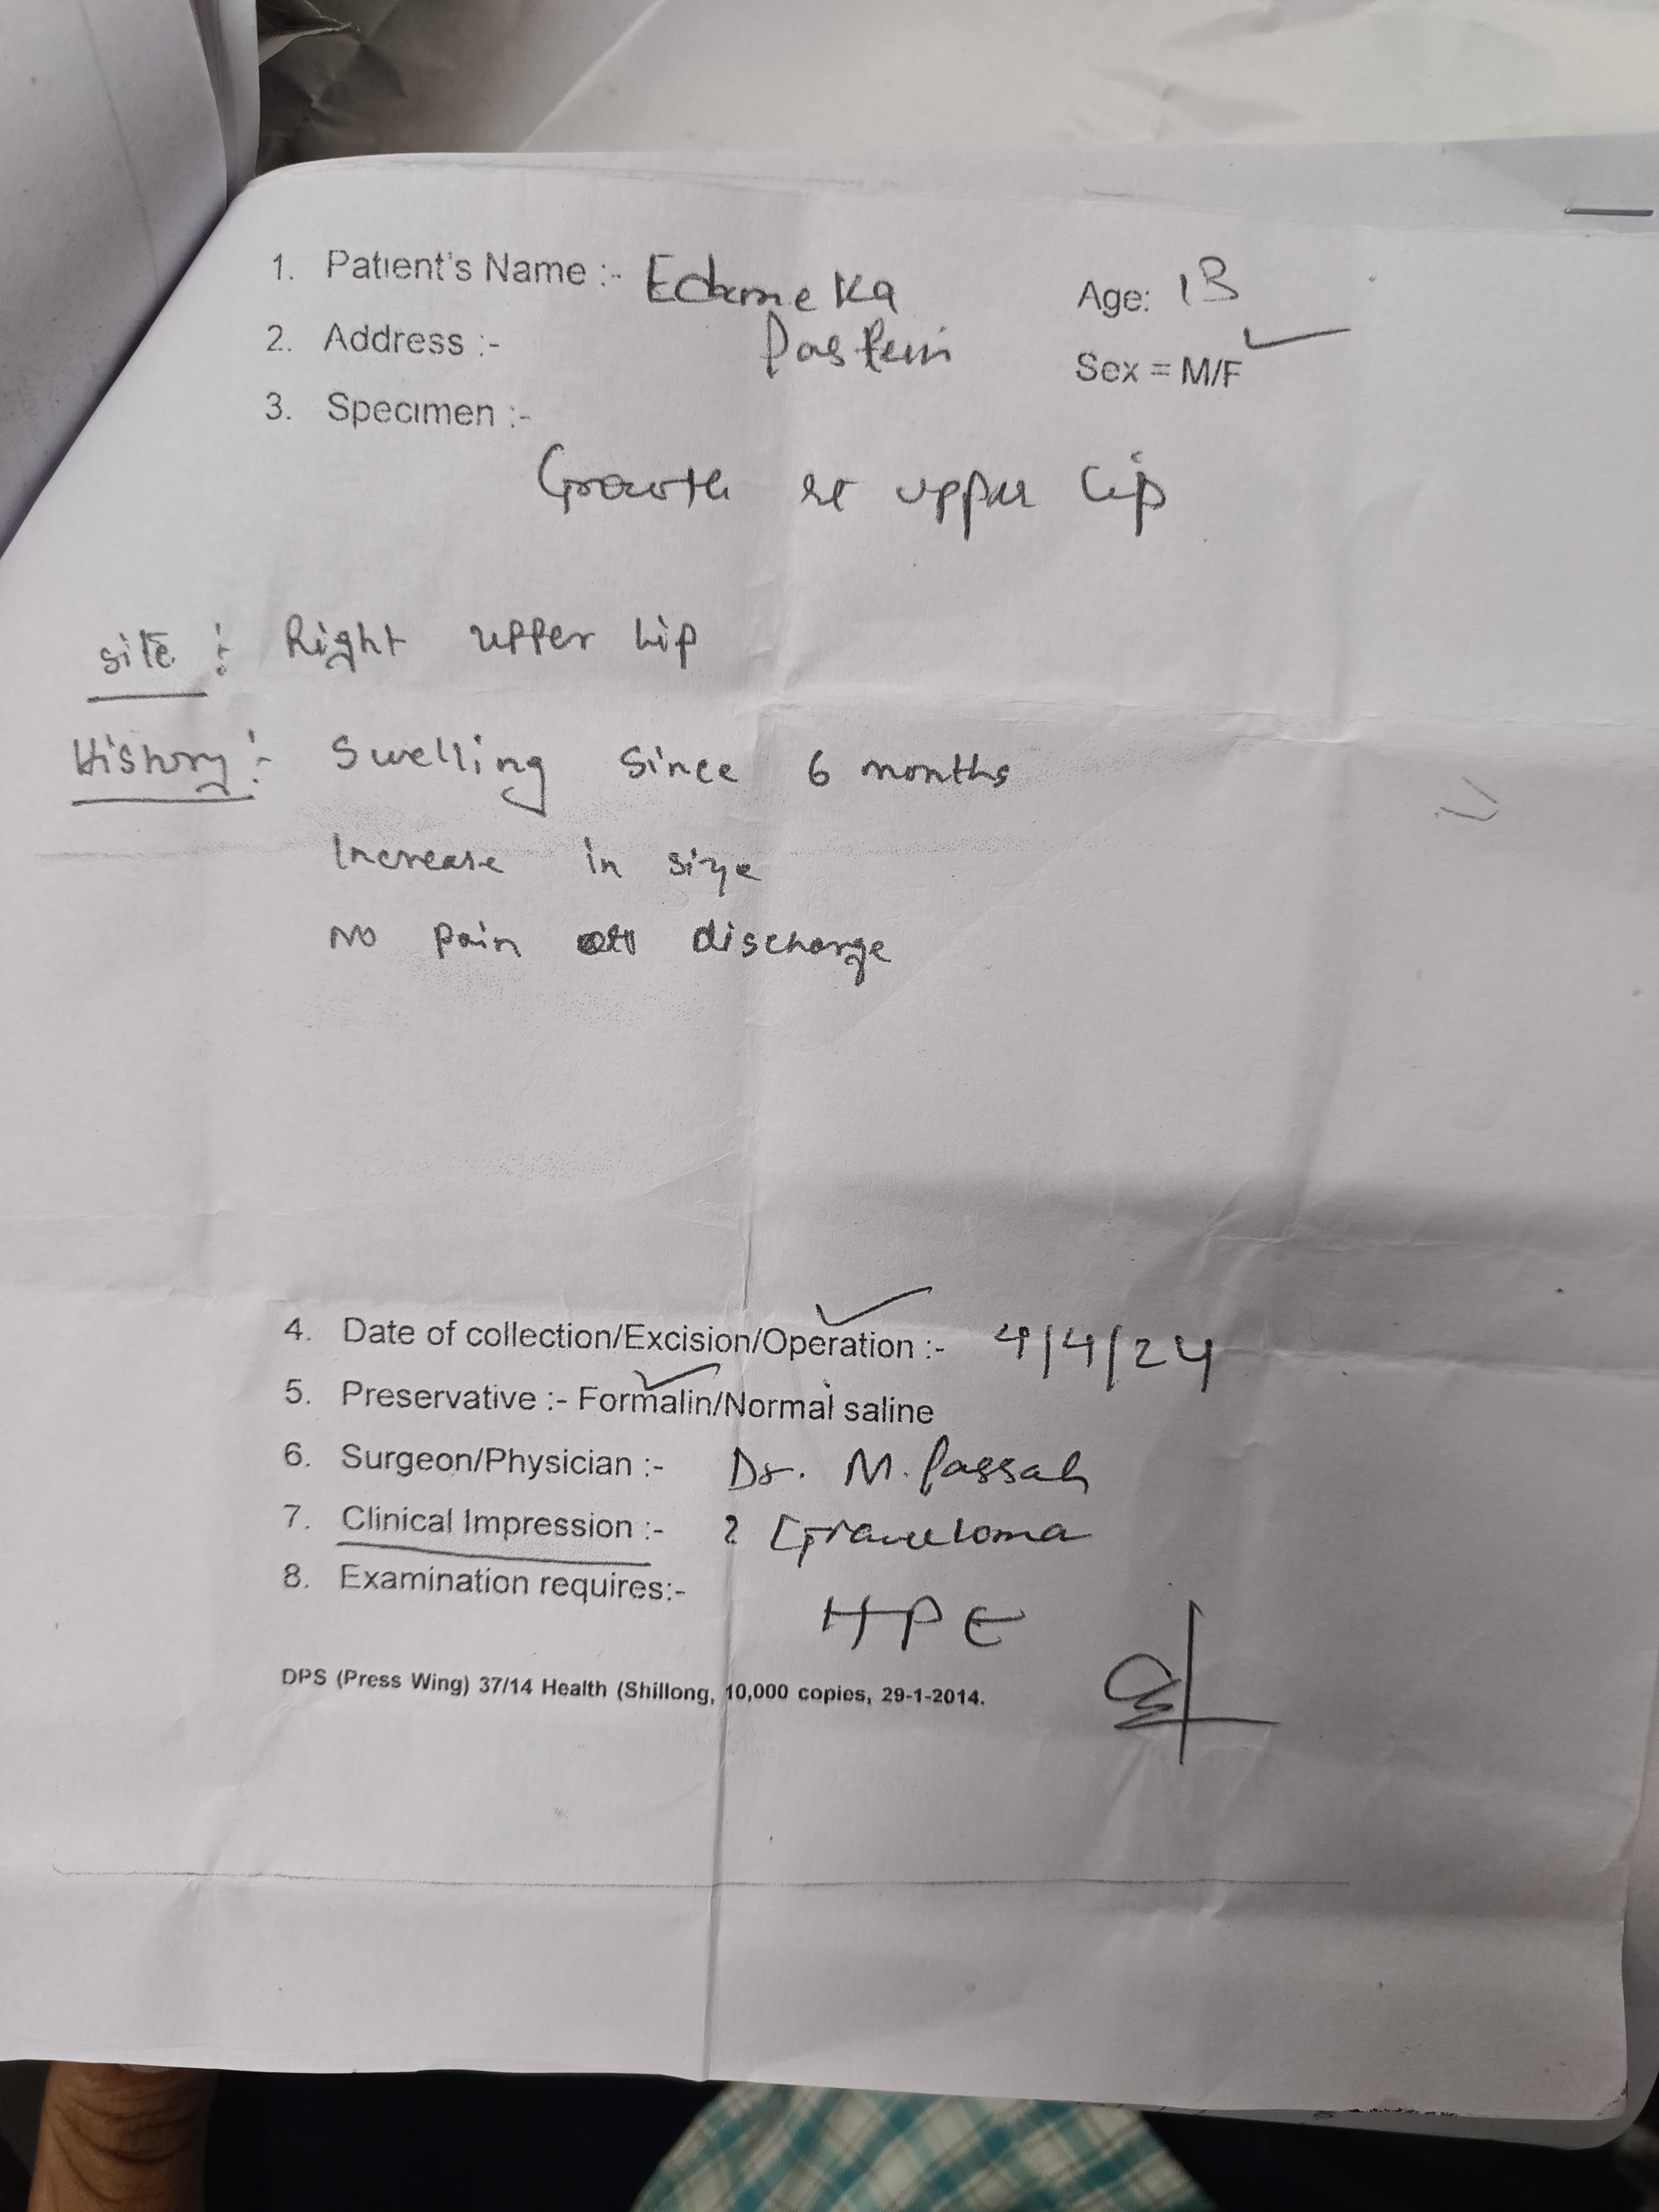 1. Patient's Name :- Edameka Age: 13
Pastein
2. Address :- Sex = M/F
3. Specimen :-
Growth rt upper lip
site :- Right upper Lip
History :- Swelling since 6 months
Increase in size
No pain discharge
4. Date of collection/Excision/Operation :- 4/4/24
5. Preservative :- Formalin/Normal saline
6. Surgeon/Physician :- Dr. M. Passah
7. Clinical Impression :- ? Granuloma
8. Examination requires:-
HPE
DPS (Press Wing) 37/14 Health (Shillong, 10,000 copies, 29-1-2014.